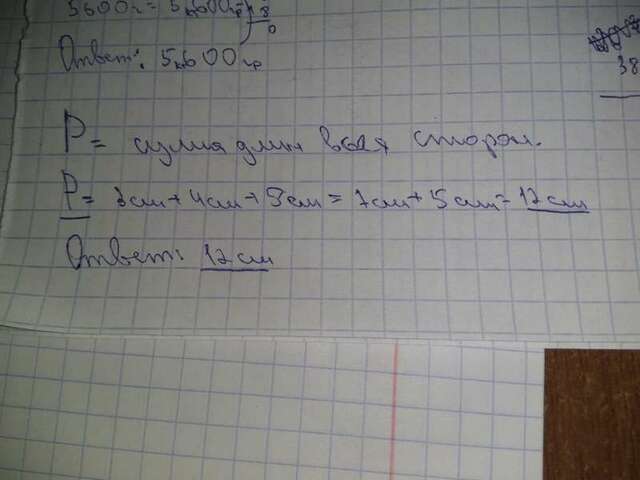 5600г = 5кг600гр
8
0
Ответ: 5кг600гр
38
P = сумма длин всех сторон.
P = 3см + 4см + 5см = 7см + 5см = 12см
Ответ: 12см